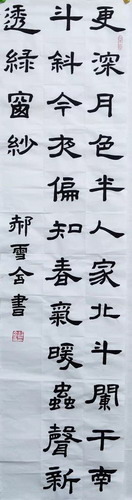 更深月色半人家北斗闌干南
斗斜今夜偏知春氣暖蟲聲新
透綠窗紗
郝雪舍書